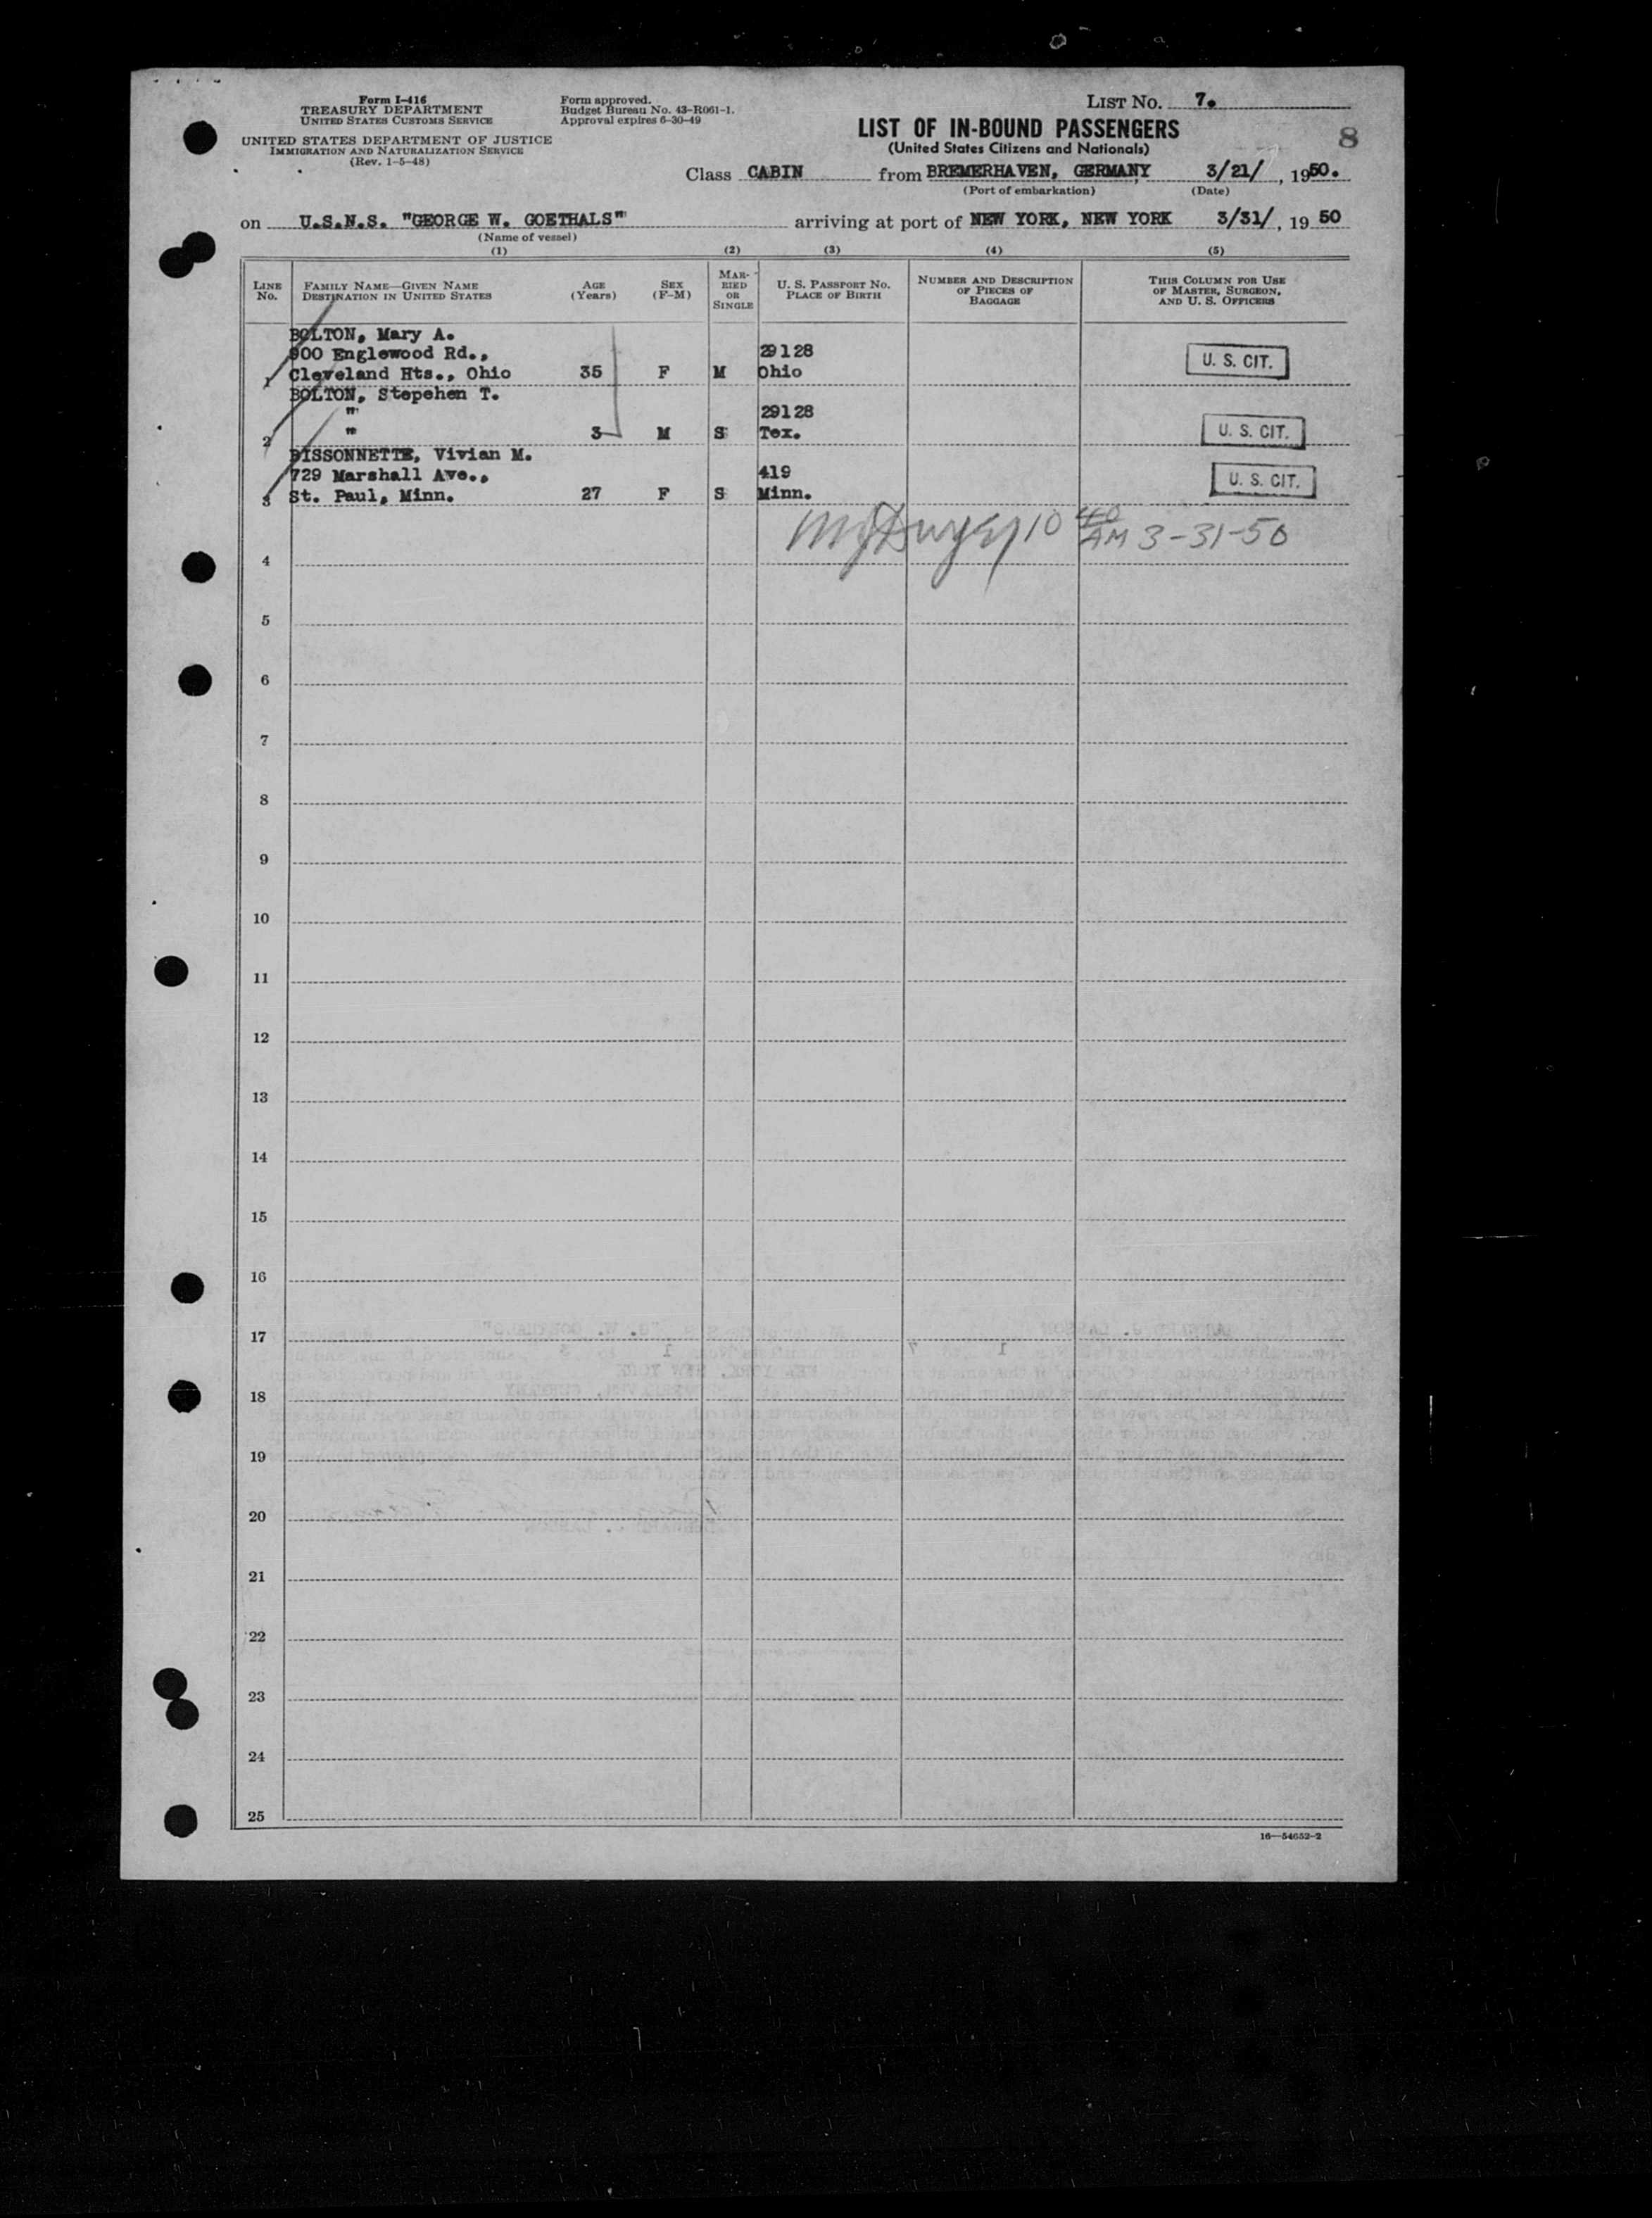 Form I-416
TREASURY DEPARTMENT
UNITED STATES CUSTOMS SERVICE
UNITED STATES DEPARTMENT OF JUSTICE
IMMIGRATION AND NATURALIZATION SERVICE
(Rev. 1-5-48)
Form approved.
Budget Bureau No. 43-R061-1.
Approval expires 6-30-49
LIST NO. 7.
LIST OF IN-BOUND PASSENGERS
(United States Citizens and Nationals)
8
Class CABIN from BREMERHAVEN, GERMANY 3/21/, 1950.
(Port of embarkation) (Date)
on U.S.N.S. "GEORGE W. GOETHALS" arriving at port of NEW YORK, NEW YORK 3/31/, 19 50
(Name of vessel)
(1) (2) (3) (4) (5)
LINE NO.
FAMILY NAME—GIVEN NAME
DESTINATION IN UNITED STATES
AGE (Years)
SEX (F-M)
MARRIED OR SINGLE
U. S. PASSPORT NO.
PLACE OF BIRTH
NUMBER AND DESCRIPTION OF PIECES OF BAGGAGE
THIS COLUMN FOR USE OF MASTER, SURGEON, AND U. S. OFFICERS
BOLTON, Mary A.
900 Englewood Rd., 29128 U. S. CIT.
1 Cleveland Hts., Ohio 35 F M Ohio
BOLTON, Stepehen T.
" 29128 U. S. CIT.
2 " 3 M S Tex.
BISSONNETTE, Vivian M.
729 Marshall Ave., 419 U. S. CIT.
3 St. Paul, Minn. 27 F S Minn.
10 40 AM 3-31-50
4
5
6
7
8
9
10
11
12
13
14
15
16
17
18
19
20
21
22
23
24
25
16—54652-2